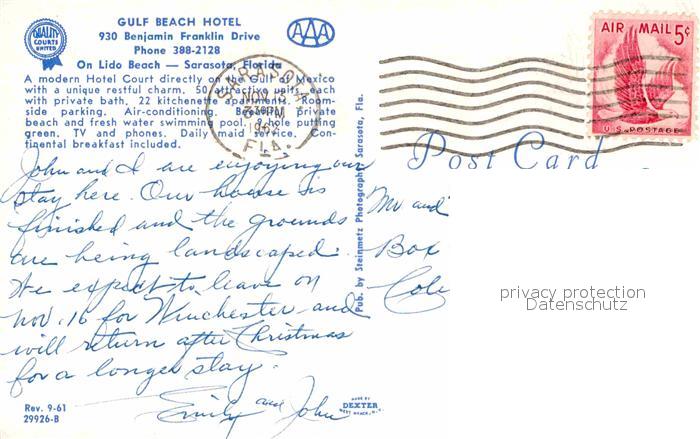 GULF BEACH HOTEL
930 Benjamin Franklin Drive
Phone 388-2128
On Lido Beach — Sarasota, Florida
QUALITY
COURTS
UNITED
AAA
A modern Hotel Court directly on the Gulf of Mexico
with a unique restful charm. 50 attractive units, each
with private bath. 22 kitchenette apartments. Room-
side parking. Air-conditioning. Beautiful private
beach and fresh water swimming pool. 9 hole putting
green. TV and phones. Daily maid service. Con-
tinental breakfast included.
SARASOTA
NOV
PM
FLA.
AIR MAIL 5¢
U.S. POSTAGE
Post Card
John and I are enjoying our
stay here. Our house is
finished and the grounds
are being landscaped.
We expect to leave on
Nov. 16 for Winchester and
will return after Christmas
for a longer stay.
Emily and John
Mr and
Box
Cole
Pub. by Steinmetz Photography, Sarasota, Fla.
privacy protection
Datenschutz
Rev. 9-61
29926-B
MADE BY
DEXTER
WEST NYACK, N.Y.